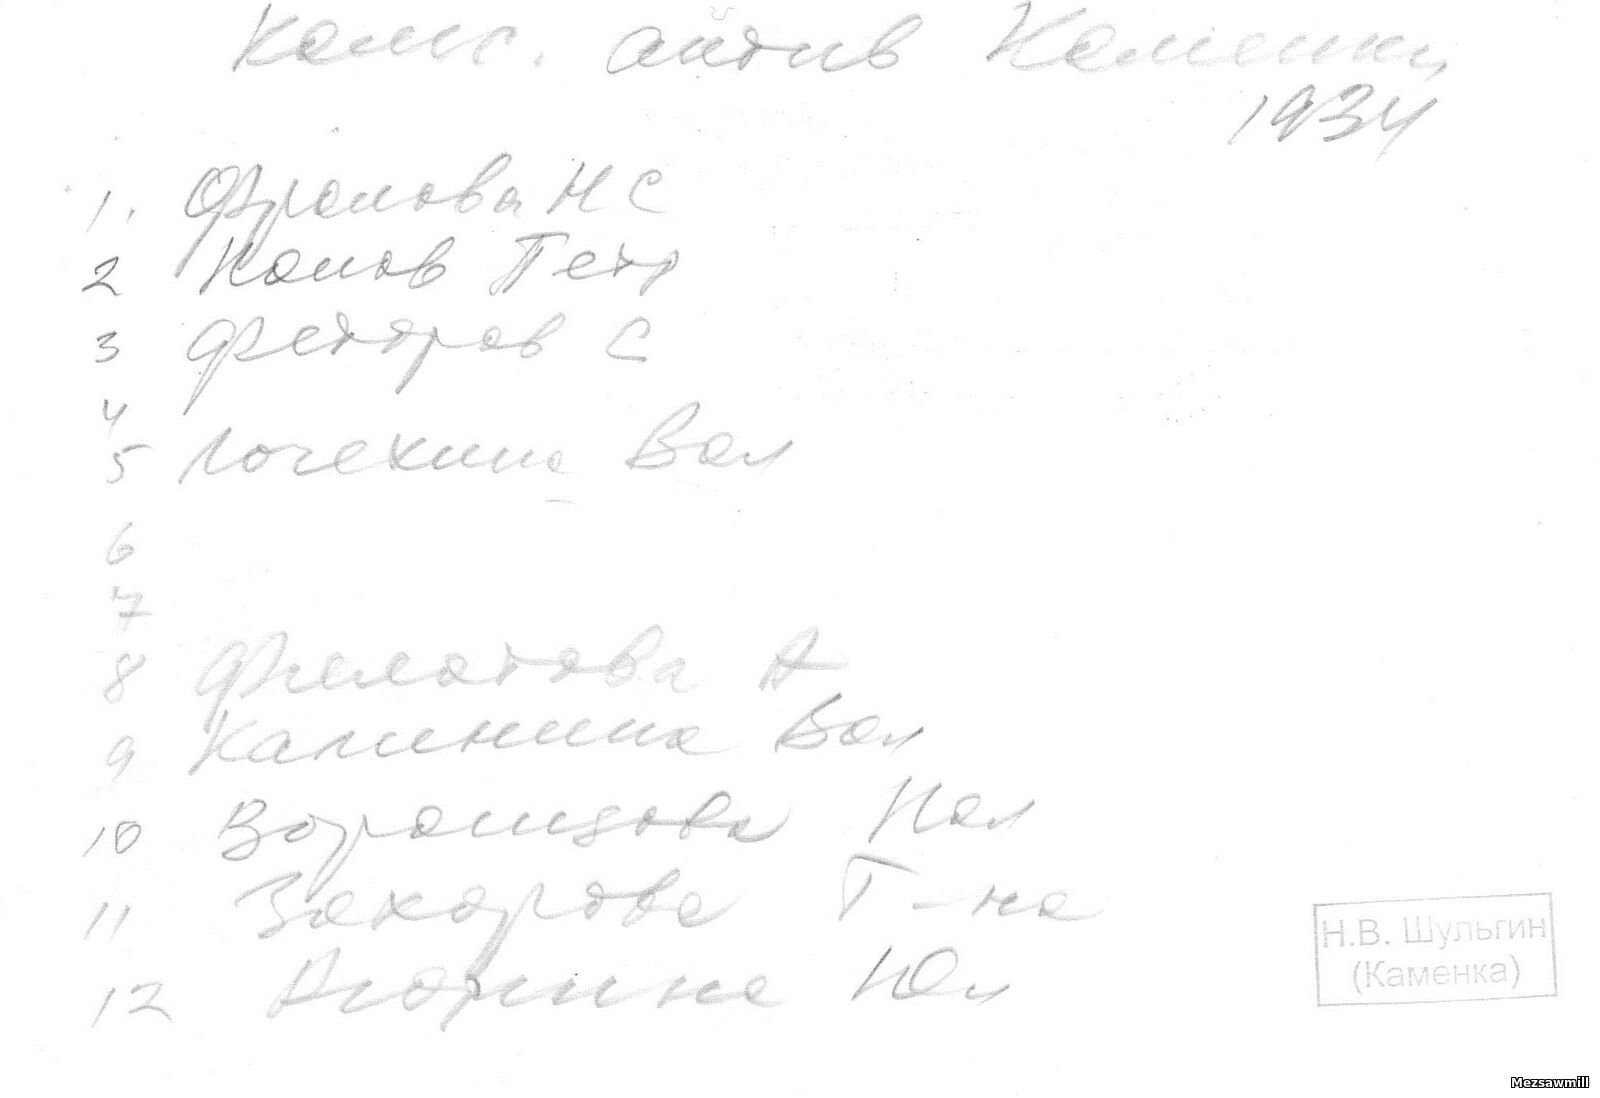 Комс. актив Каменки
1934
1. Фролова Н С
2 Попов Петр
3 Федоров С
4
5 Почехина Вал
6
7
8 Филатова А
9 Калинина Вал
10 Воронцова
11 Захарова Т-на
12 Юл
Н.В. Шульгин
(Каменка)
Mezsawmill